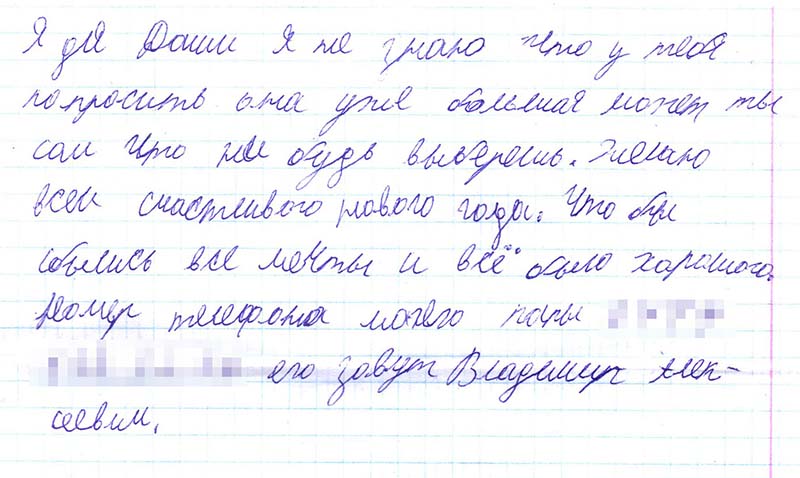 Я для Даши я не знаю что у тебя
попросить она уже большая может ты
сам что ни будь выберешь. Желаю
всем счастливого нового года. Что бы
сбылись все мечты и всё было харошого.
Номер телефона моего папы
его завут Владимир Алек-
сеевич.